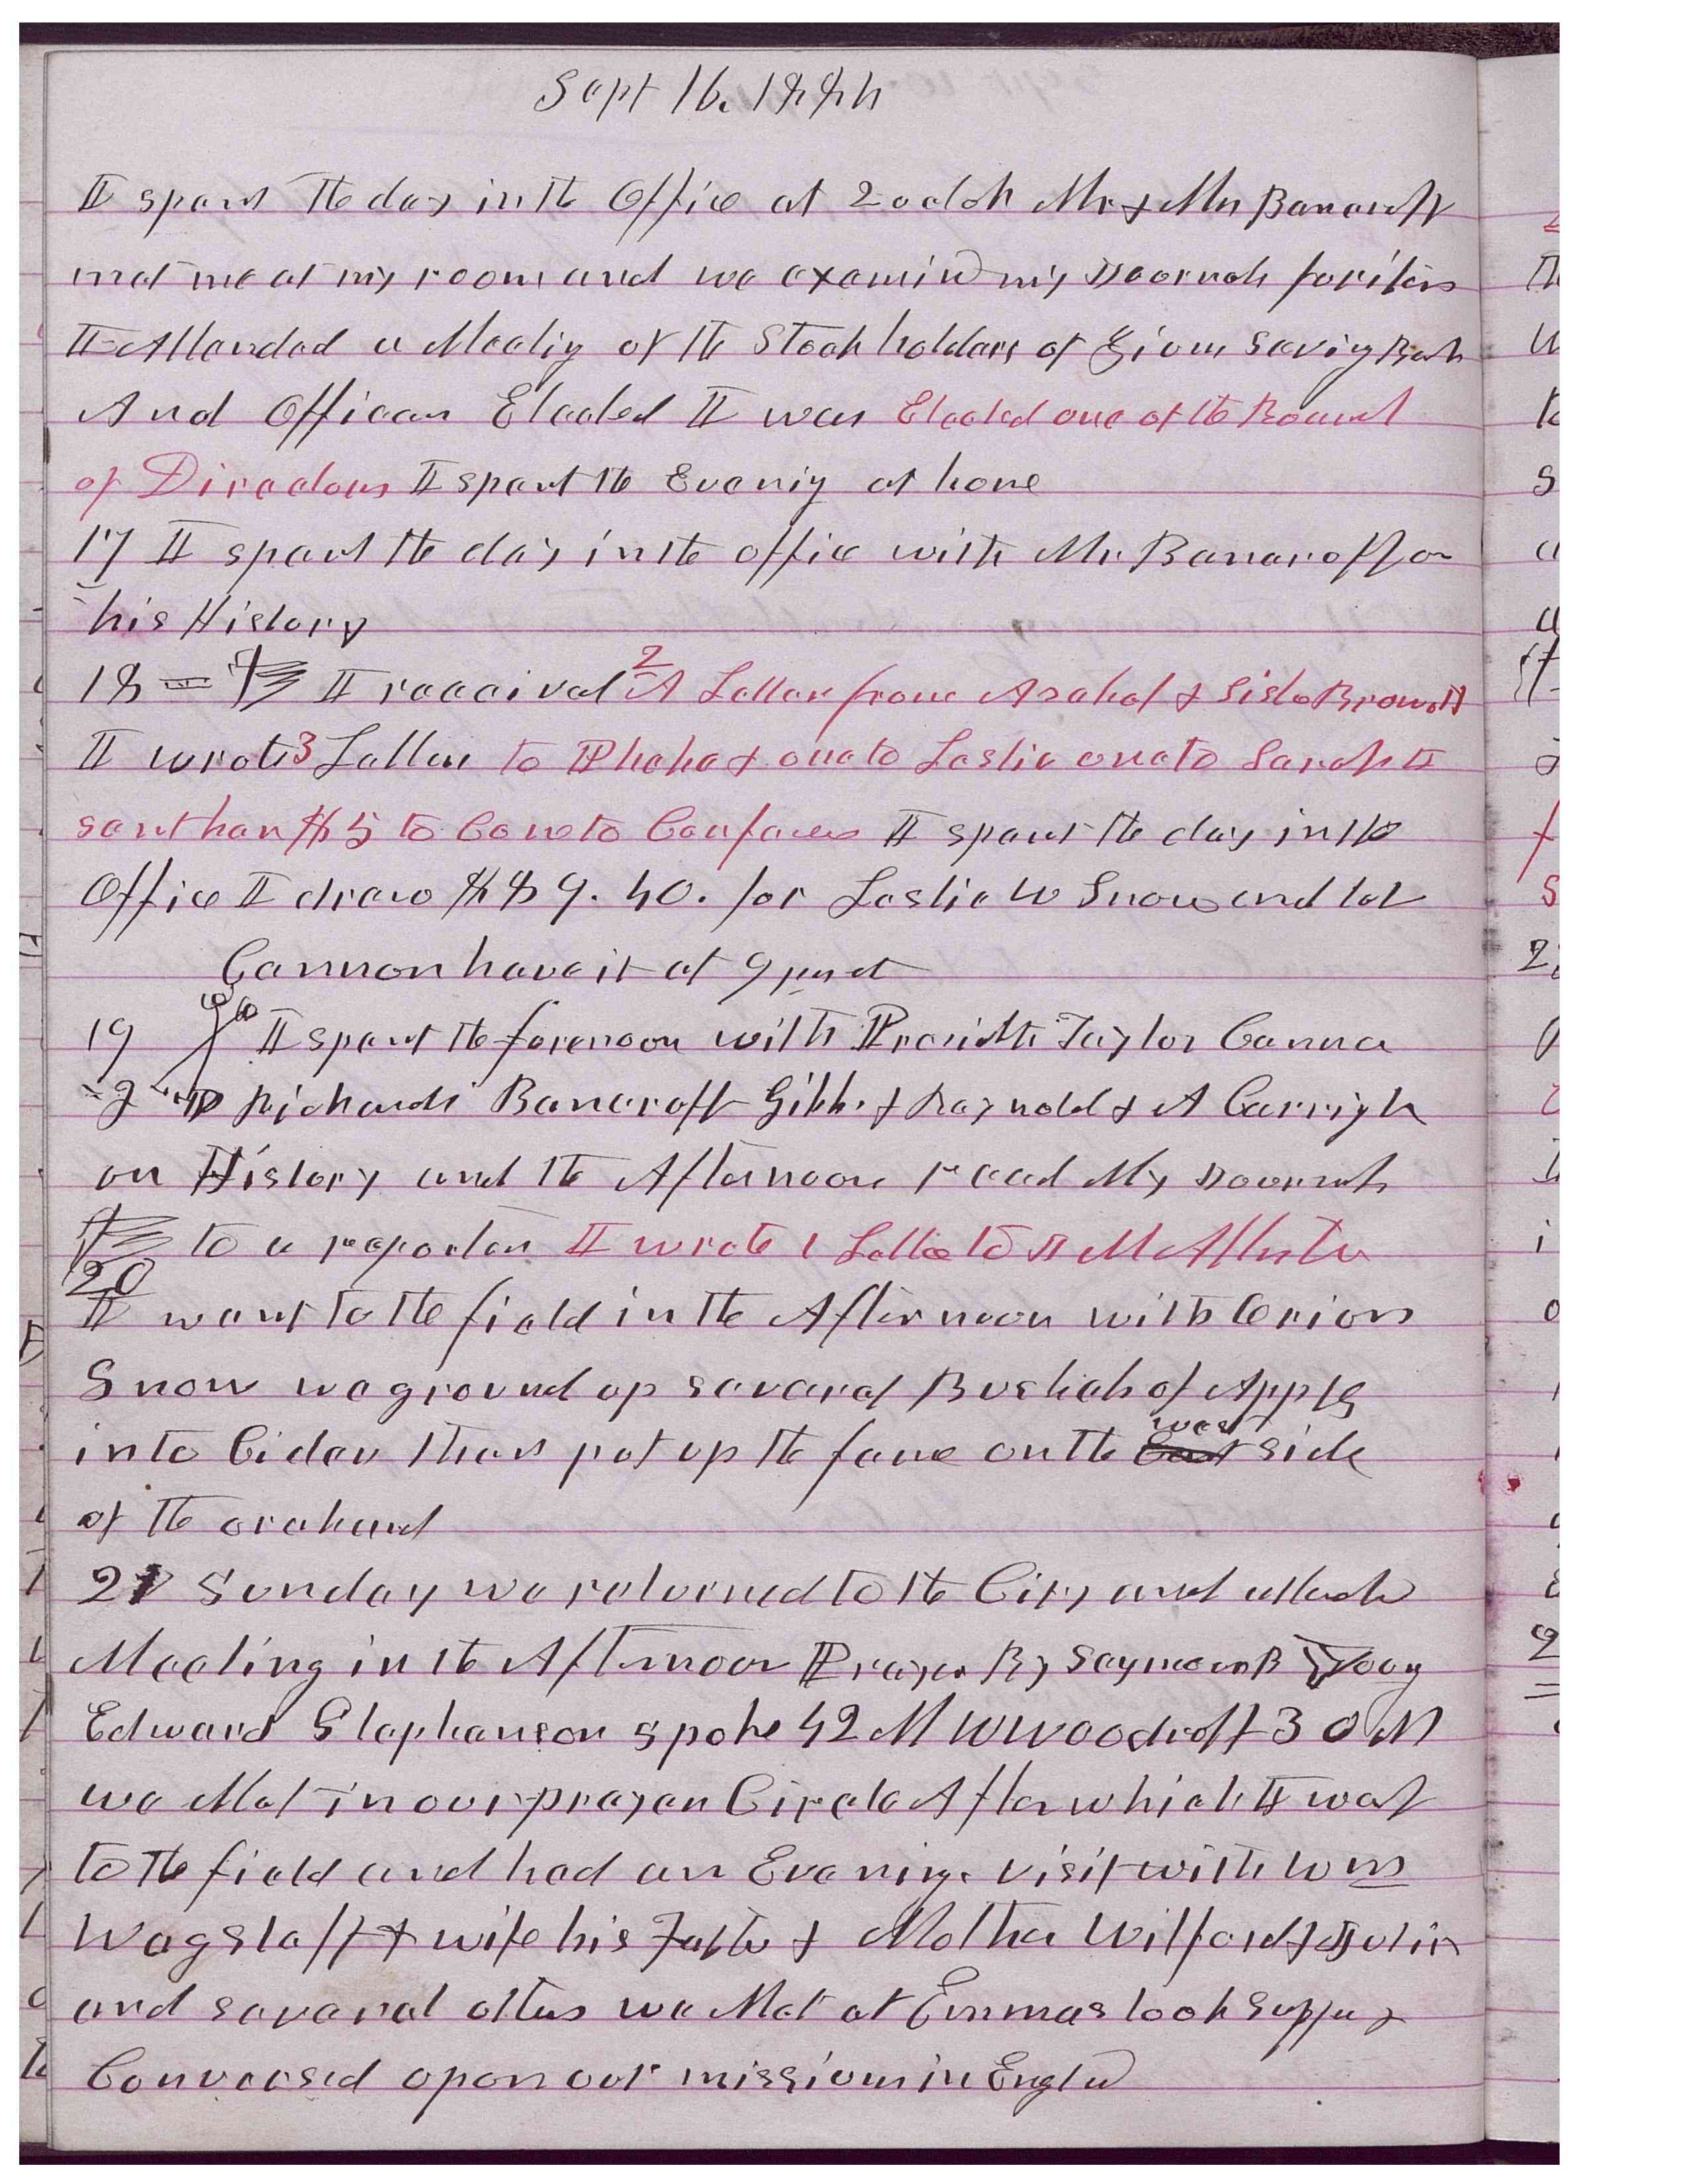 Sept 16, 1884
I spent the day in the Office at 2 oclok Mr & Mrs Bancroft
met me at my room and we examind my Journals for items
I Attended a Meeting of the Stockholders of Zions Saving Bank
And Officers Elected I was Elected one of the Board
of Directors I spent the Evening at home
17 I spent the day in the office with Mr. Bancroft on
his History
18 I received 2 A Letters from Asahel & Sister Brown
I wrote 3 Letters to Phebe & one to Leslie one to Sarah I
sent her $5 to Come to Conference I spent the day in the
Office I drew $89.40. for Leslie W Snow and let
Cannon have it at 9 per ct
19 I spent the forenoon with Presidt Taylor Cannon
F D Richards Bancroft Gibbs & Raynolds & A Carrigh
on History and the Afternoon read My Journals
to a reporter I wrote 1 Letter to J McAllister
20
I went to the field in the Afternoon with Orion
Snow we ground up several Bushels of Apples
into Cider then put up the fence on the East west side
of the orchard
21 Sunday we returned to the City and attended
Meeting in the Afternoon Prayer By Seymour B Young
Edward Stephenson spoke 42 M W Woodruff 30 M
we Met in our prayer Circle After which I went
to the field and had an Evening visit with Wm
Wagstaff & wife his Father & Mother Wilford & Julia
and several others we Met at Emmas took Supper &
Conversed upon our missions in England